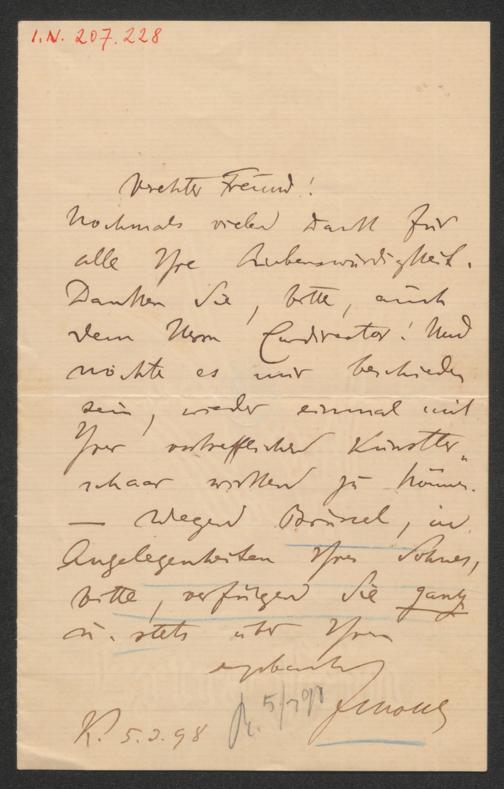 I.N. 207.228
Verehrter Freund!
Nochmals vielen Dank für
alle Ihre Liebenswürdigkeit.
Danken Sie, bitte, auch
dem Herrn Curdirector! Und
möchte es mir beschieden
sein, wieder einmal mit
Ihrer vortrefflichen Künstler-
schaar wirken zu können.
— Wegen Brüssel, in
Angelegenheiten Ihres Sohnes,
bitte, verfügen Sie ganz
u. stets über Ihren
ergebensten
K. 5.2.98